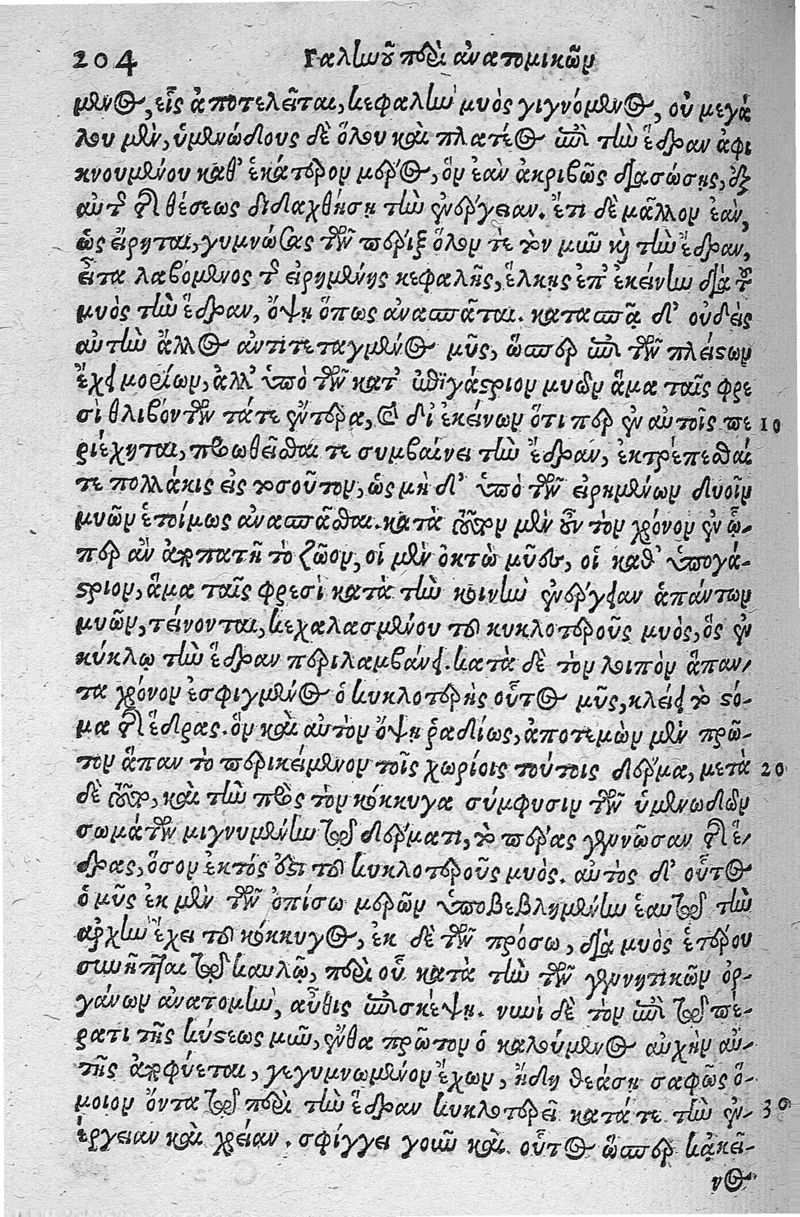 204 Γαληνοῦ περὶ ἀνατομικῶν
μενος, εἷς ἀποτελεῖται, κεφαλὴν μυὸς γιγνόμενος, οὐ μεγά
λου μὲν, ὑμενώδους δὲ ὅλου καὶ πλατέος ἐπὶ τὴν ἕδραν ἀφι
κνουμένου καθ' ἑκάτερον μέρος, ὃν ἐὰν ἀκριβῶς διασώσῃς, ἐξ
αὐτῆς τῆς θέσεως διδαχθήσῃ τὴν ἐνέργειαν. ἔτι δὲ μᾶλλον ἐὰν,
ὡς εἴρηται, γυμνώσας τῶν πέριξ ὅλον τε τὸν μῦν καὶ τὴν ἕδραν,
εἶτα λαβόμενος τῆς εἰρημένης κεφαλῆς, ἕλκῃς ἐπ' ἐκείνην διὰ τοῦ
μυὸς τὴν ἕδραν, ὄψῃ ὅπως ἀνασπᾶται. κατασπᾷ δ' οὐδεὶς
αὐτὴν ἄλλος ἀντιτεταγμένος μῦς, ὥσπερ ἐπὶ τῶν πλείστων
ἔχει μορίων, ἀλλ' ὑπὸ τῶν κατ' ἐπιγάστριον μυῶν ἅμα ταῖς φρε
σὶ θλιβόντων τά τε ἔντερα, καὶ δι' ἐκείνων ὅτι περ ἐν αὐτοῖς πε 10
ριέχηται, προωθεῖσθαι τε συμβαίνει τὴν ἕδραν, ἐκτρέπεσθαί
τε πολλάκις εἰς τοσοῦτον, ὡς μὴ δ' ὑπὸ τῶν εἰρημένων δυοῖν
μυῶν ἑτοίμως ἀνασπᾶσθαι. κατὰ μὲν οὖν τὸν χρόνον ἐν ᾧ-
περ ἂν ἀποπατῇ τὸ ζῶον, οἱ μὲν ὀκτὼ μῦες, οἱ καθ' ὑπογά-
στριον, ἅμα ταῖς φρεσὶ κατὰ τὴν κοινὴν ἐνέργειαν ἁπάντων
μυῶν, τείνονται, κεχαλασμένου τοῦ κυκλοτεροῦς μυὸς, ὃς ἐν
κύκλῳ τὴν ἕδραν περιλαμβάνει. κατὰ δὲ τὸν λοιπὸν ἅπαν-
τα χρόνον ἐσφιγμένος ὁ κυκλοτερὴς οὗτος μῦς, κλείει τὸ στό-
μα τῆς ἕδρας. ὃν καὶ αὐτὸν ὄψῃ ῥαδίως, ἀποτεμὼν μὲν πρῶ-
τον ἅπαν τὸ περικείμενον τοῖς χωρίοις τούτοις δέρμα, μετὰ 20
δὲ καὶ τὴν πρὸς τὸν κόκκυγα σύμφυσιν τῶν ὑμενωδῶν
σωμάτων μιγνυμένην τῷ δέρματι, τὸ πέρας γεννῶσαν τῆς ἕ-
δρας, ὅσον ἐκτός ἐστι τοῦ κυκλοτεροῦς μυὸς. αὐτὸς δ' οὗτος
ὁ μῦς ἐκ μὲν τῶν ὀπίσω μερῶν ὑποβεβλημένην ἑαυτῷ τὴν
ἀρχὴν ἔχει τοῦ κόκκυγος, ἐκ δὲ τῶν πρόσω, διὰ μυὸς ἑτέρου
συνῆπται τῷ καυλῷ, περὶ οὗ κατὰ τὴν τῶν γεννητικῶν ὀρ-
γάνων ἀνατομὴν, αὖθις ἐπισκέψῃ. νυνὶ δὲ τὸν ἐπὶ τῷ πέ-
ρατι τῆς κύστεως μῦν, ἔνθα πρῶτον ὁ καλούμενος αὐχὴν αὐ-
τῆς ἀποφύεται, γεγυμνωμένον ἔχων, ἤδη θεάσῃ σαφῶς ὅ-
μοιον ὄντα τῷ περὶ τὴν ἕδραν κυκλοτερεῖ κατά τε τὴν ἐν- 30
έργειαν καὶ χρείαν. σφίγγει γοῦν καὶ οὗτος ὥσπερ κἀκεῖ-
νος